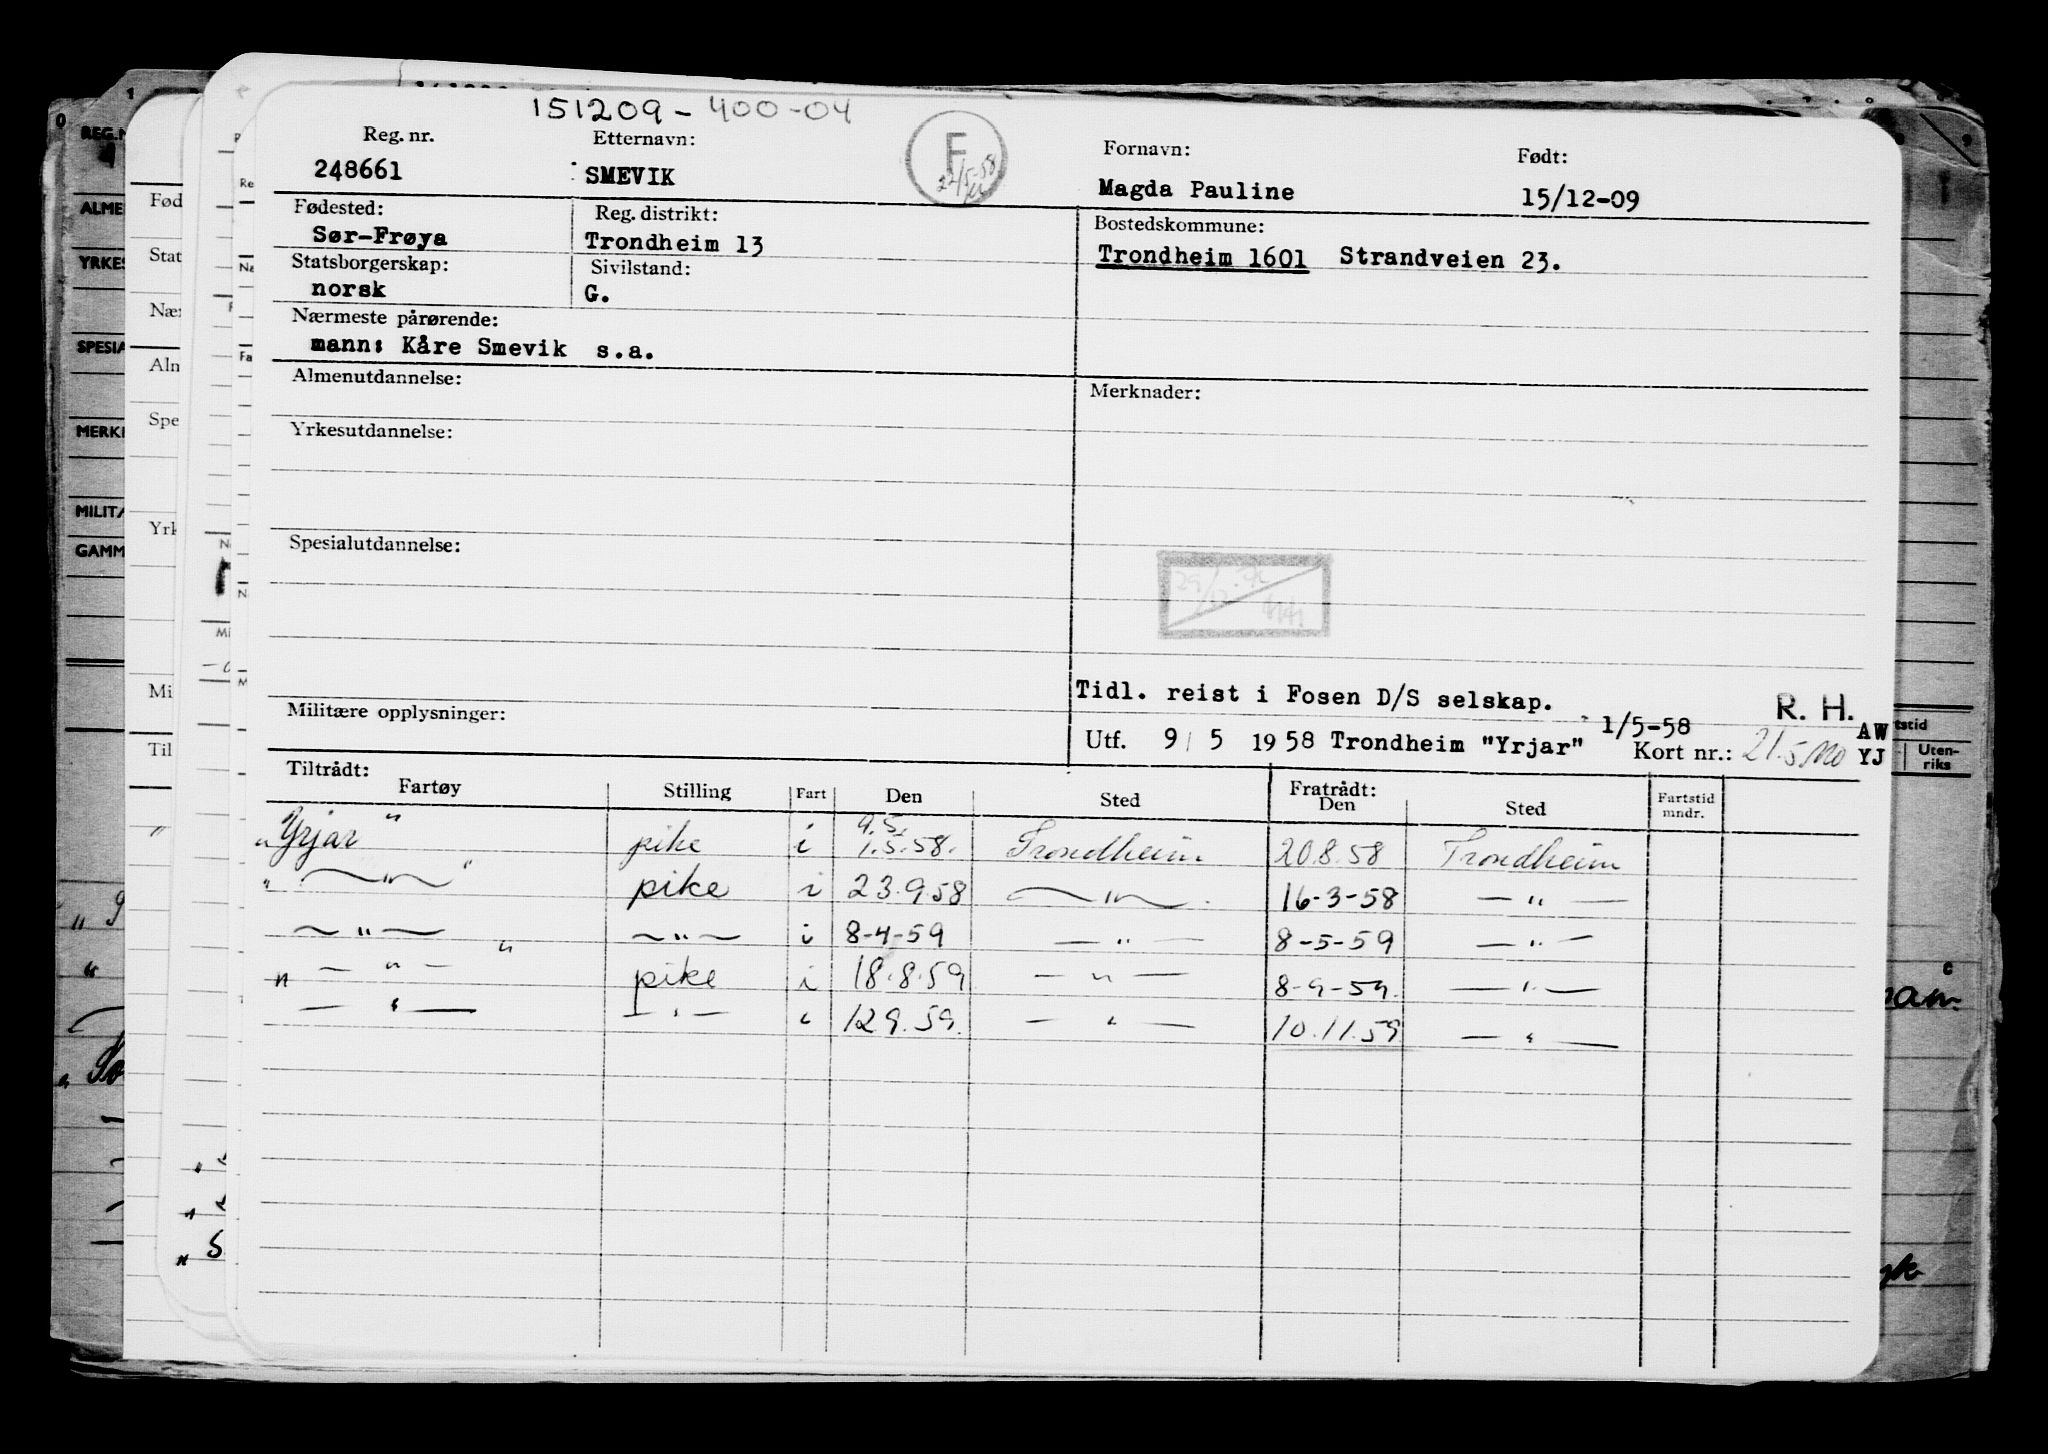 151209-400-04
Reg. nr. Etternavn: Fornavn: Født:
248661 SMEVIK F Magda Pauline 15/12-09
22/5-58
Fødested: Reg. distrikt: Bostedskommune:
Sør-Frøya Trondheim 13 Trondheim 1601 Strandveien 23.
Statsborgerskap: Sivilstand:
norsk G.
Nærmeste pårørende:
mann: Kåre Smevik s.a.
Almenutdannelse: Merknader:
Yrkesutdannelse:
Spesialutdannelse:
Tidl. reist i Fosen D/S selskap. R. H.
Militære opplysninger: 1/5-58 AW
Utf. 9/ 5 1958 Trondheim "Yrjar" Kort nr.: 21.5 YJ
Tiltrådt: Fratrådt:
Fartøy Stilling Fart Den Sted Den Sted Fartstid mndr.
9.5.
"Yrjar" pike i 1.5.58. Trondheim 20.8.58 Trondheim
" — " — " pike i 23.9.58 — " — 16-3-58 — " —
— " — — " — i 8-4-59 — " — 8-5-59 — " —
" — " — " pike i 18.8.59 — " — 8-9-59. — " —
— " — — " — i 12.9.59. — " — 10.11.59 — " —
REG.N
ALME
YRKES
SPESIA
MERKI
MILITÆ
GAMM
Fød
Stat
Nær
Alm
Spe
Yrk
Mi
Til
rtstid
Uten-
riks